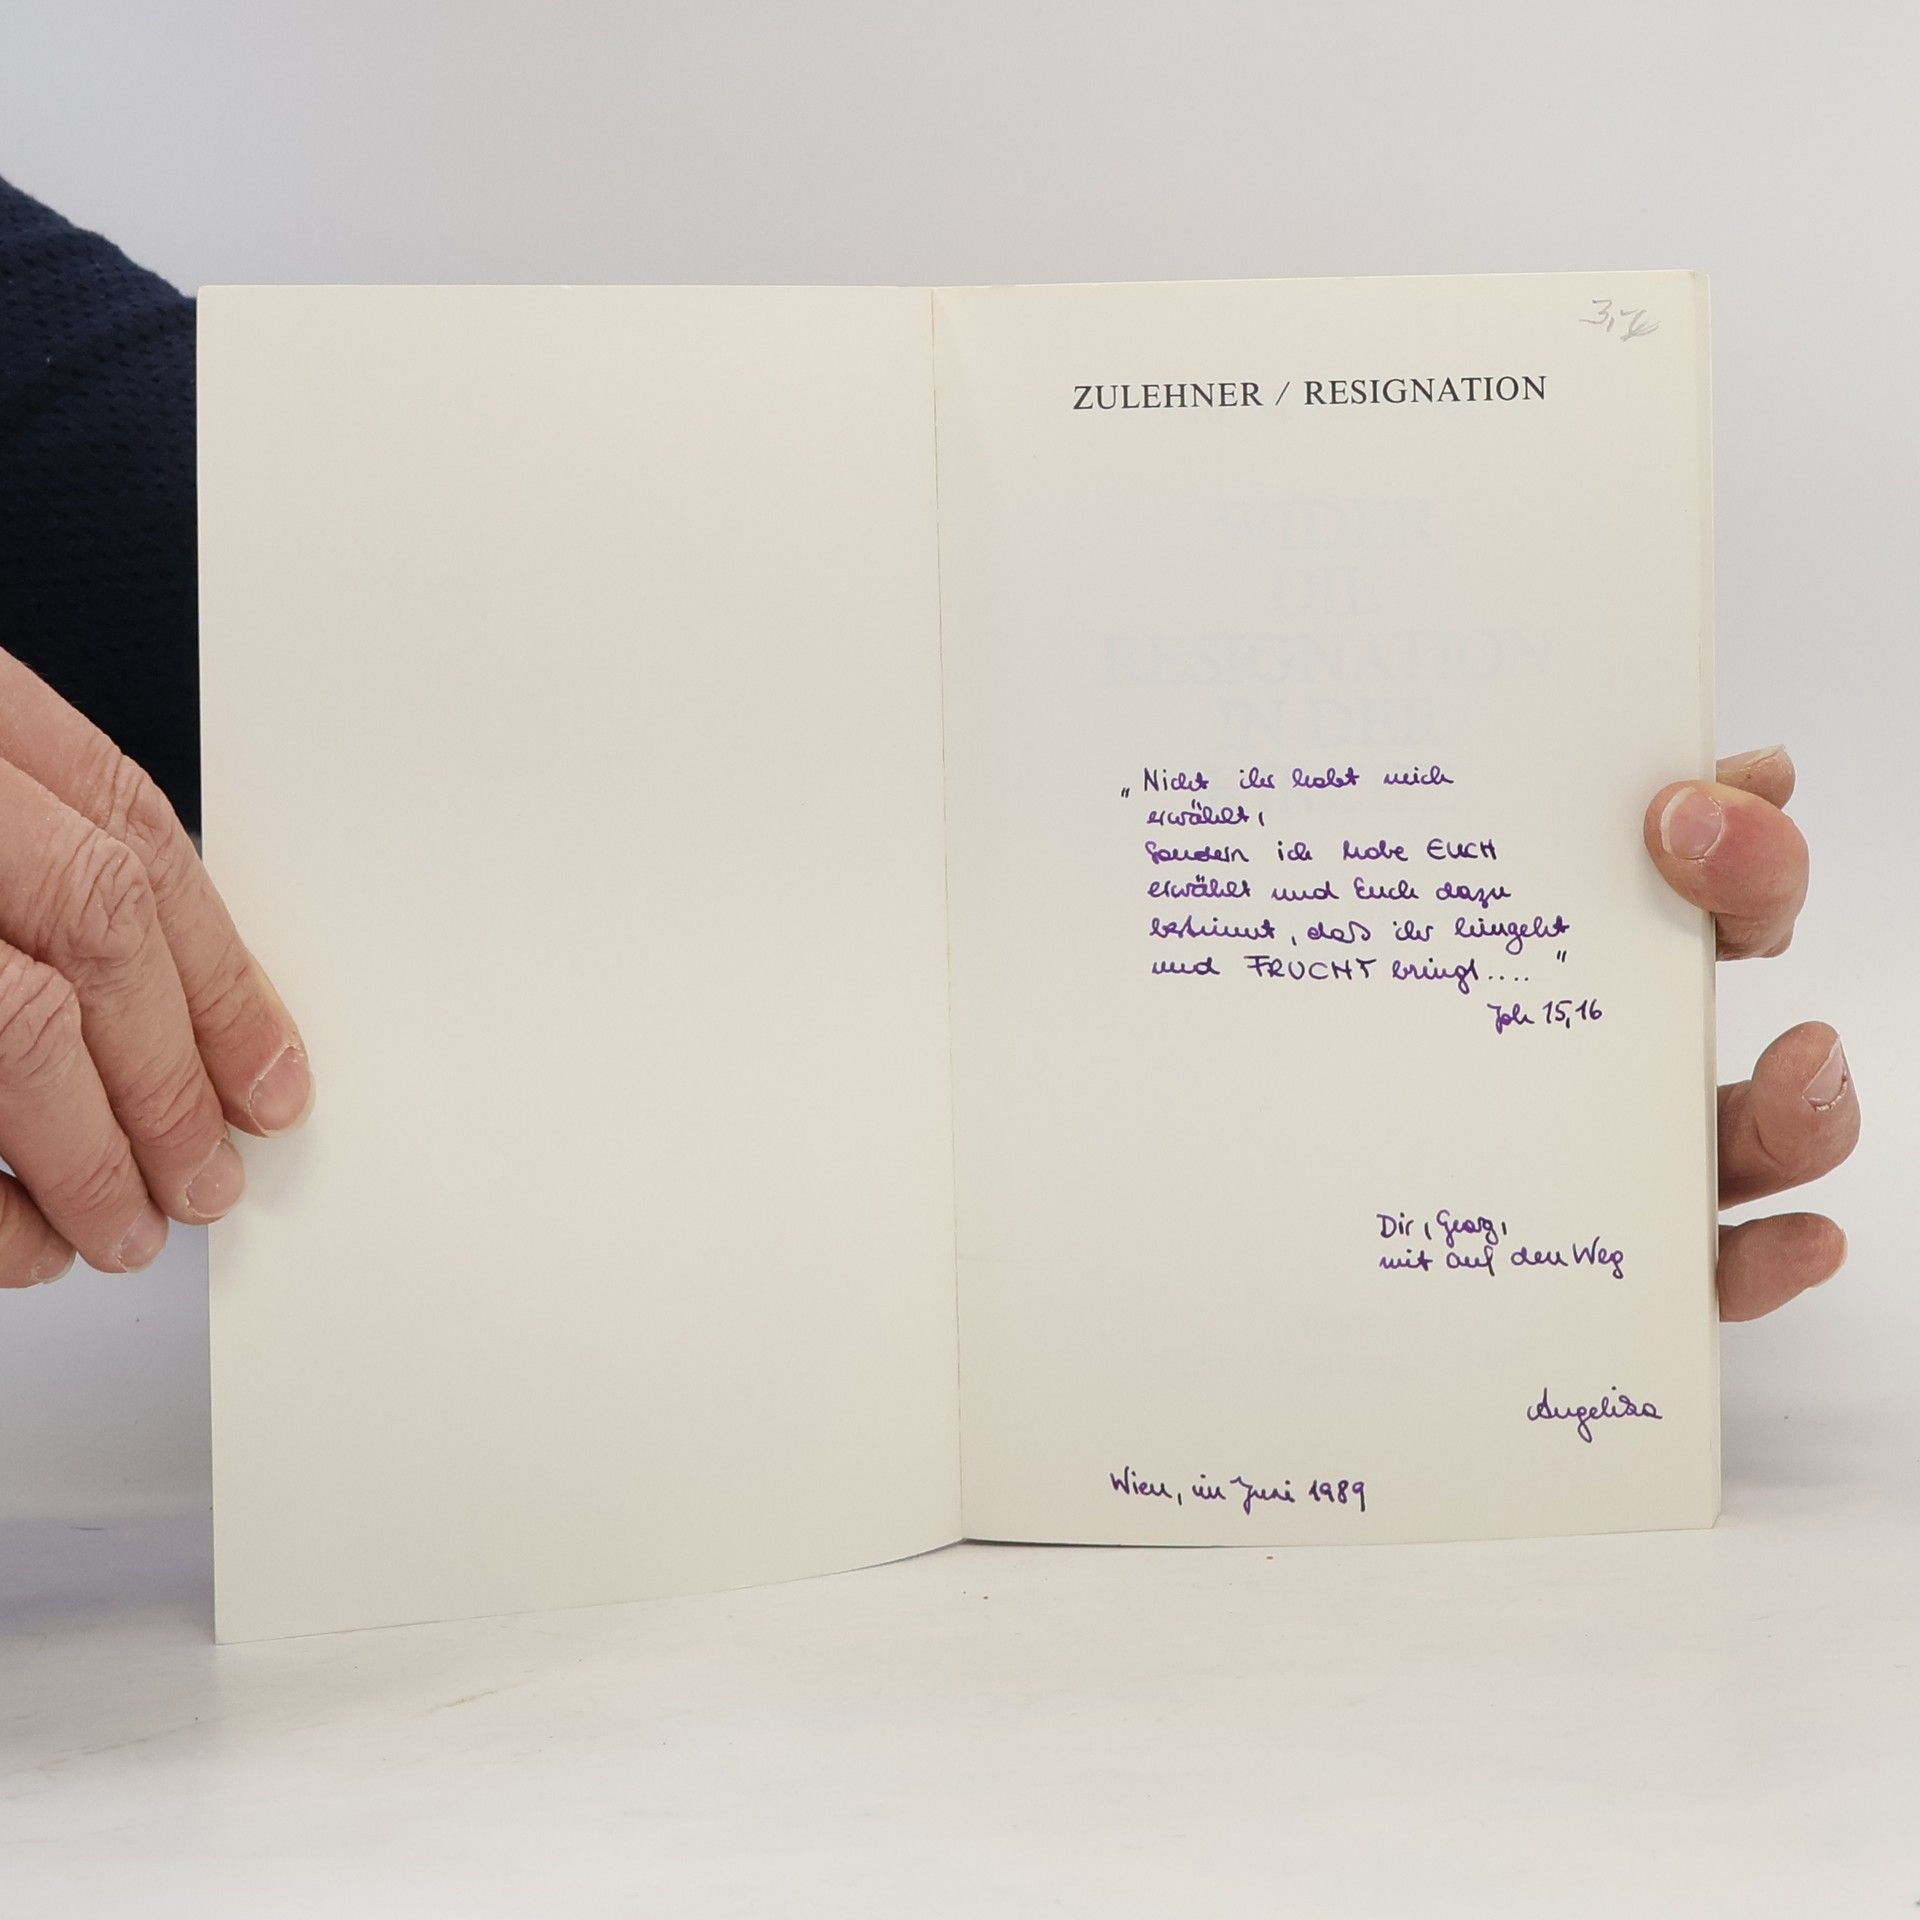 3,-
ZULEHNER / RESIGNATION
WIDER
DIE
RESIGNATION
IN DER
„Nicht ihr habt mich
erwählt,
sondern ich habe EUCH
erwählt und Euch dazu
bestimmt, daß ihr hingeht
und FRUCHT bringt...."
Joh 15,16
Dir, Georg,
mit auf den Weg
Angelika
Wien, im Juni 1989